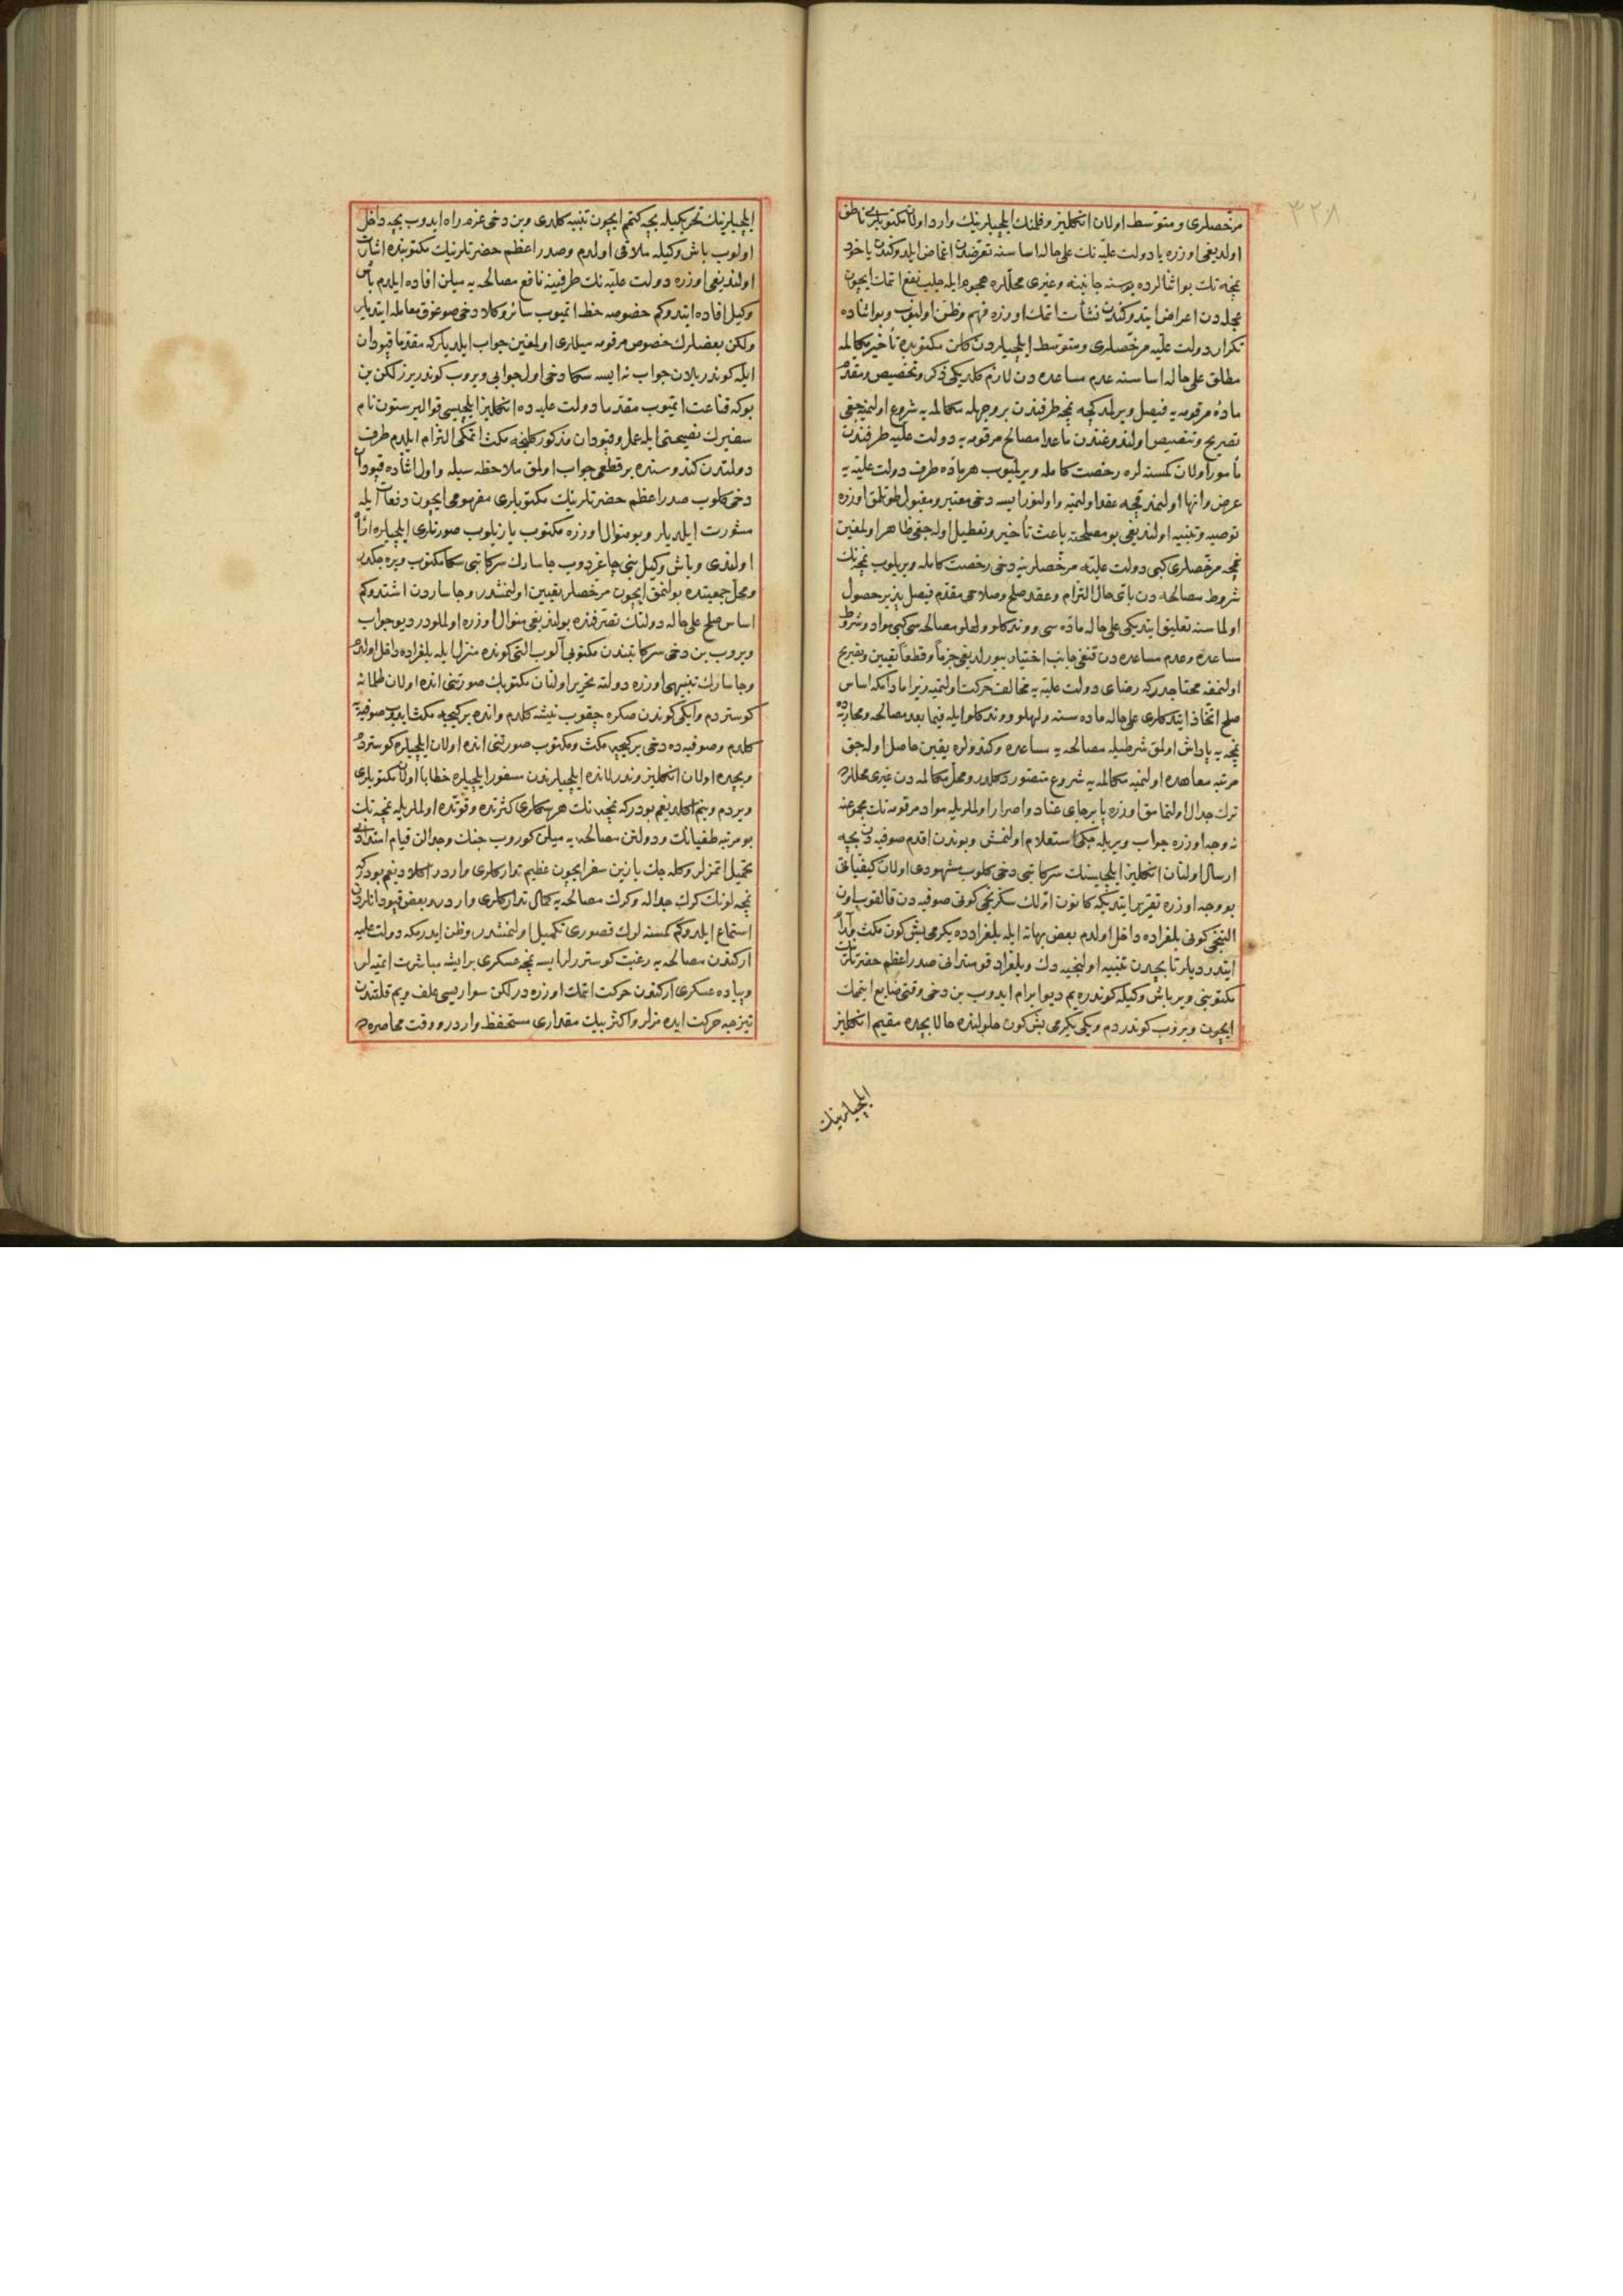 ٣٢٨
مرخصلری و متوسط اولان انكلیز و فلمنك ایلچیلرینك وارد اولان مكتوبلری ناطق
اولدیغی اوزره یا دولت علیه نك علی حاله اساسنه تعرضدن اغماض ایلدوكندن یاخود
نمچه نك بو اثنالرده بوسنه جانبنه و غیری محللره هجوم ایله جلب نفع اتمك ایچون
عجله دن اعراض ایتدوكندن نشأت اتمك اوزره فهم و ظن اولنوب و بو اثناده
تكرار دولت علیه مرخصلری و متوسط ایلچیلردن كلن مكتوبده تأخیر مكالمه
مطلق علی حاله اساسنه عدم مساعده دن لازم كلدیكی ذكر و تخصیص و مقدم
ماده مرقومه یه فیصل ویرلمدكجه نمچه طرفندن بر وجهله مكالمه یه شروع اولنمیه جغی
تصریح و تنصیص اولندوغندن ماعدا مصالح مرقومه یه دولت علیه طرفندن
مأمور اولان كمسنه لره رخصت كامله ویرلمیوب هر ماده طرف دولت علیه یه
عرض و انها اولنمدقجه عقد اولنمیه و اولنورایسه دخی معتبر و مقبول طوتلمق اوزره
توصیه و تنبیه اولندیغی بو مصلحته باعث تأخیر و تعطیل اوله جغی ظاهر اولمغین
نمچه مرخصلری كبی دولت علیه مرخصلرینه دخی رخصت كامله ویریلوب نمچه نك
شروط مصالحه دن باقی حال التزام و عقد صلح و صلاحی مقدم فیصل پذیر حصول
اولماسنه تعلیق ایتدیكی علی حاله ماده سی و وندكلو و لهلو مصالحه سی كبی مواد و شروط
مساعده و عدم مساعده دن قنغی جانب اختیار بیورلدیغی جزماً و قطعاً تعیین و تصریح
اولنمغه محتاجدر كه رضای دولت علیه یه مخالف حركت اولنمیه زیرا مادامكه اساس
صلح اتخاذ ایتدكلری علی حاله ماده سنه و لهلو و وندكلو ایله فیما بعد مصالحه و محاربه ده
نمچه یه یاداش اولمق شرطیله مصالحه یه مساعده و كندولره یقین حاصل اوله جق
مرتبه معاهده اولنمیه مكالمه یه شروع متصور دكلدر و محل مكالمه دن غیری محللرده
ترك جدال اولنمامق اوزره پا برجای عناد و اصرار اولملریله مواد مرقومه نك مجموعنه
نه وجه اوزره جواب ویریله جكی استعلام اولنمش و بوندن اقدم صوفیه دن بچه
ارسال اولنان انكلیز ایلچیسنك سر كاتبی دخی كلوب مشهودی اولان كیفیاتی
بو وجه اوزره تقریر ایتدیكه كانون اولك سكزنجی كونی صوفیه دن قالقوب اون
التنجی كونی بلغراده داخل اولدم بعض بهانه ایله بلغرادده یكرمی بش كون مكث
ایتدردیلر تا بچدن تنبیه اولنجیه دك و بلغراد قومندانی صدر اعظم حضرتلرینك
مكتوبنی ویر باش وكیله كوندره یم دیو ابرام ایدوب بن دخی وقتی ضایع ایتمك
ایچون ویروب كوندردم و یكی یكرمی بش كون حلولنده حالا بچده مقیم انكلیز
ایلچیلرینك
ایلچیلرینك تحریكیله بچه كتم ایچون تنبیه كلدی و بن دخی عزم راه ایدوب بچه داخل
اولوب باش وكیله ملاقی اولدم و صدر اعظم حضرتلرینك مكتوبنده اشارت
اولندیغی اوزره دولت علیه نك طرفینه نافع مصالحه یه میلن افاده ایلدم باش
وكیل افاده ایتدوكم خصوصه حظ اتمیوب سائر وكلا دخی صوغوق معامله ایتدیلر
ولكن بعضلرك خصوص مرقومه میللری اولمغین جواب ایلدیلر كه مقدما قپودان
ایله كوندریلان جواب نه ایسه سكا دخی اول جوابی ویروب كوندریرز لكن بن
بوكه قناعت اتمیوب مقدما دولت علیه ده انكلیز ایلچیسی قوالیر ستون نام
سفیرك نصیحتی ایله عمل و قپودان مذكور كلنجه مكث اتمكی التزام ایلدم طرف
دولتدن كندوسنده بر قطعی جواب اولمق ملاحظه سیله و اول اثناده قپودان
دخی كلوب صدر اعظم حضرتلرینك مكتوبلری مفهومی ایچون دفعات ایله
مشورت ایلدیلر و بو منوال اوزره مكتوب یازیلوب صورتلری ایلچیلره ارائه
اولندی و باش وكیل بنی چاغردوب جاسارك سر كاتبی سكا مكتوب ویره جكدر
و محل جمعیتده بولنمق ایچون مرخصلر تعیین اولنمشدر و جاساردن اشتدوكم
اساس صلح علی حاله دولتك تصرفنده بولندیغی منوال اوزره اولملودر دیو جواب
ویروب بن دخی سر كاتبندن مكتوبی آلوب التی كونده منزل ایله بلغراده داخل اولدم
و جاسارك تنبیهی اوزره دولته تحریر اولنان مكتوبك صورتنی انده اولان طلمانه
كوستردم و ایكی كوندن صكره چقوب نیشه كلدم و انده بر كیجه مكث ایدوب صوفیه یه
كلدم و صوفیه ده دخی بر كیجه مكث و مكتوب صورتنی انده اولان ایلچیلره كوستردم
و بچده اولان انكلیز و ندرلانده ایلچیلرندن سفور ایلچیلره خطابا اولان مكتوبلری
ویردم و بنم اكلدیغم بودر كه نمچه نك هر سكاری كثرتده و قوتده اولملریله نمچه نك
بو مرتبه طغیانك و دولتن مصالحه یه میلن كوروب جنك و جدالن قیام استدادی
تحمیل اتمزلر و كله جك یازین سفر ایچون عظیم تداركلری واردر اكلادیغم بودر كه
نمچه لونك كرك جداله و كرك مصالحه یه كمال تداركلری واردر و بعض قپودانلردن
استماع ایلدوكم كمسنه لرك قصوری تكمیل اولنمشدر و ظن ایدرمكه دولت علیه
اركندن مصالحه یه رغبت كوسترلر ایسه نمچه عسكری بر ایشه مباشرت اتمیه لر
و پیاده عسكری اركندن حركت اتمك اوزره در لكن سواریسی علف و یم قلتندن
تیزجه حركت ایده مزلر و اكثر بیك مقداری مستحفظ واردر و وقت محاصره ده